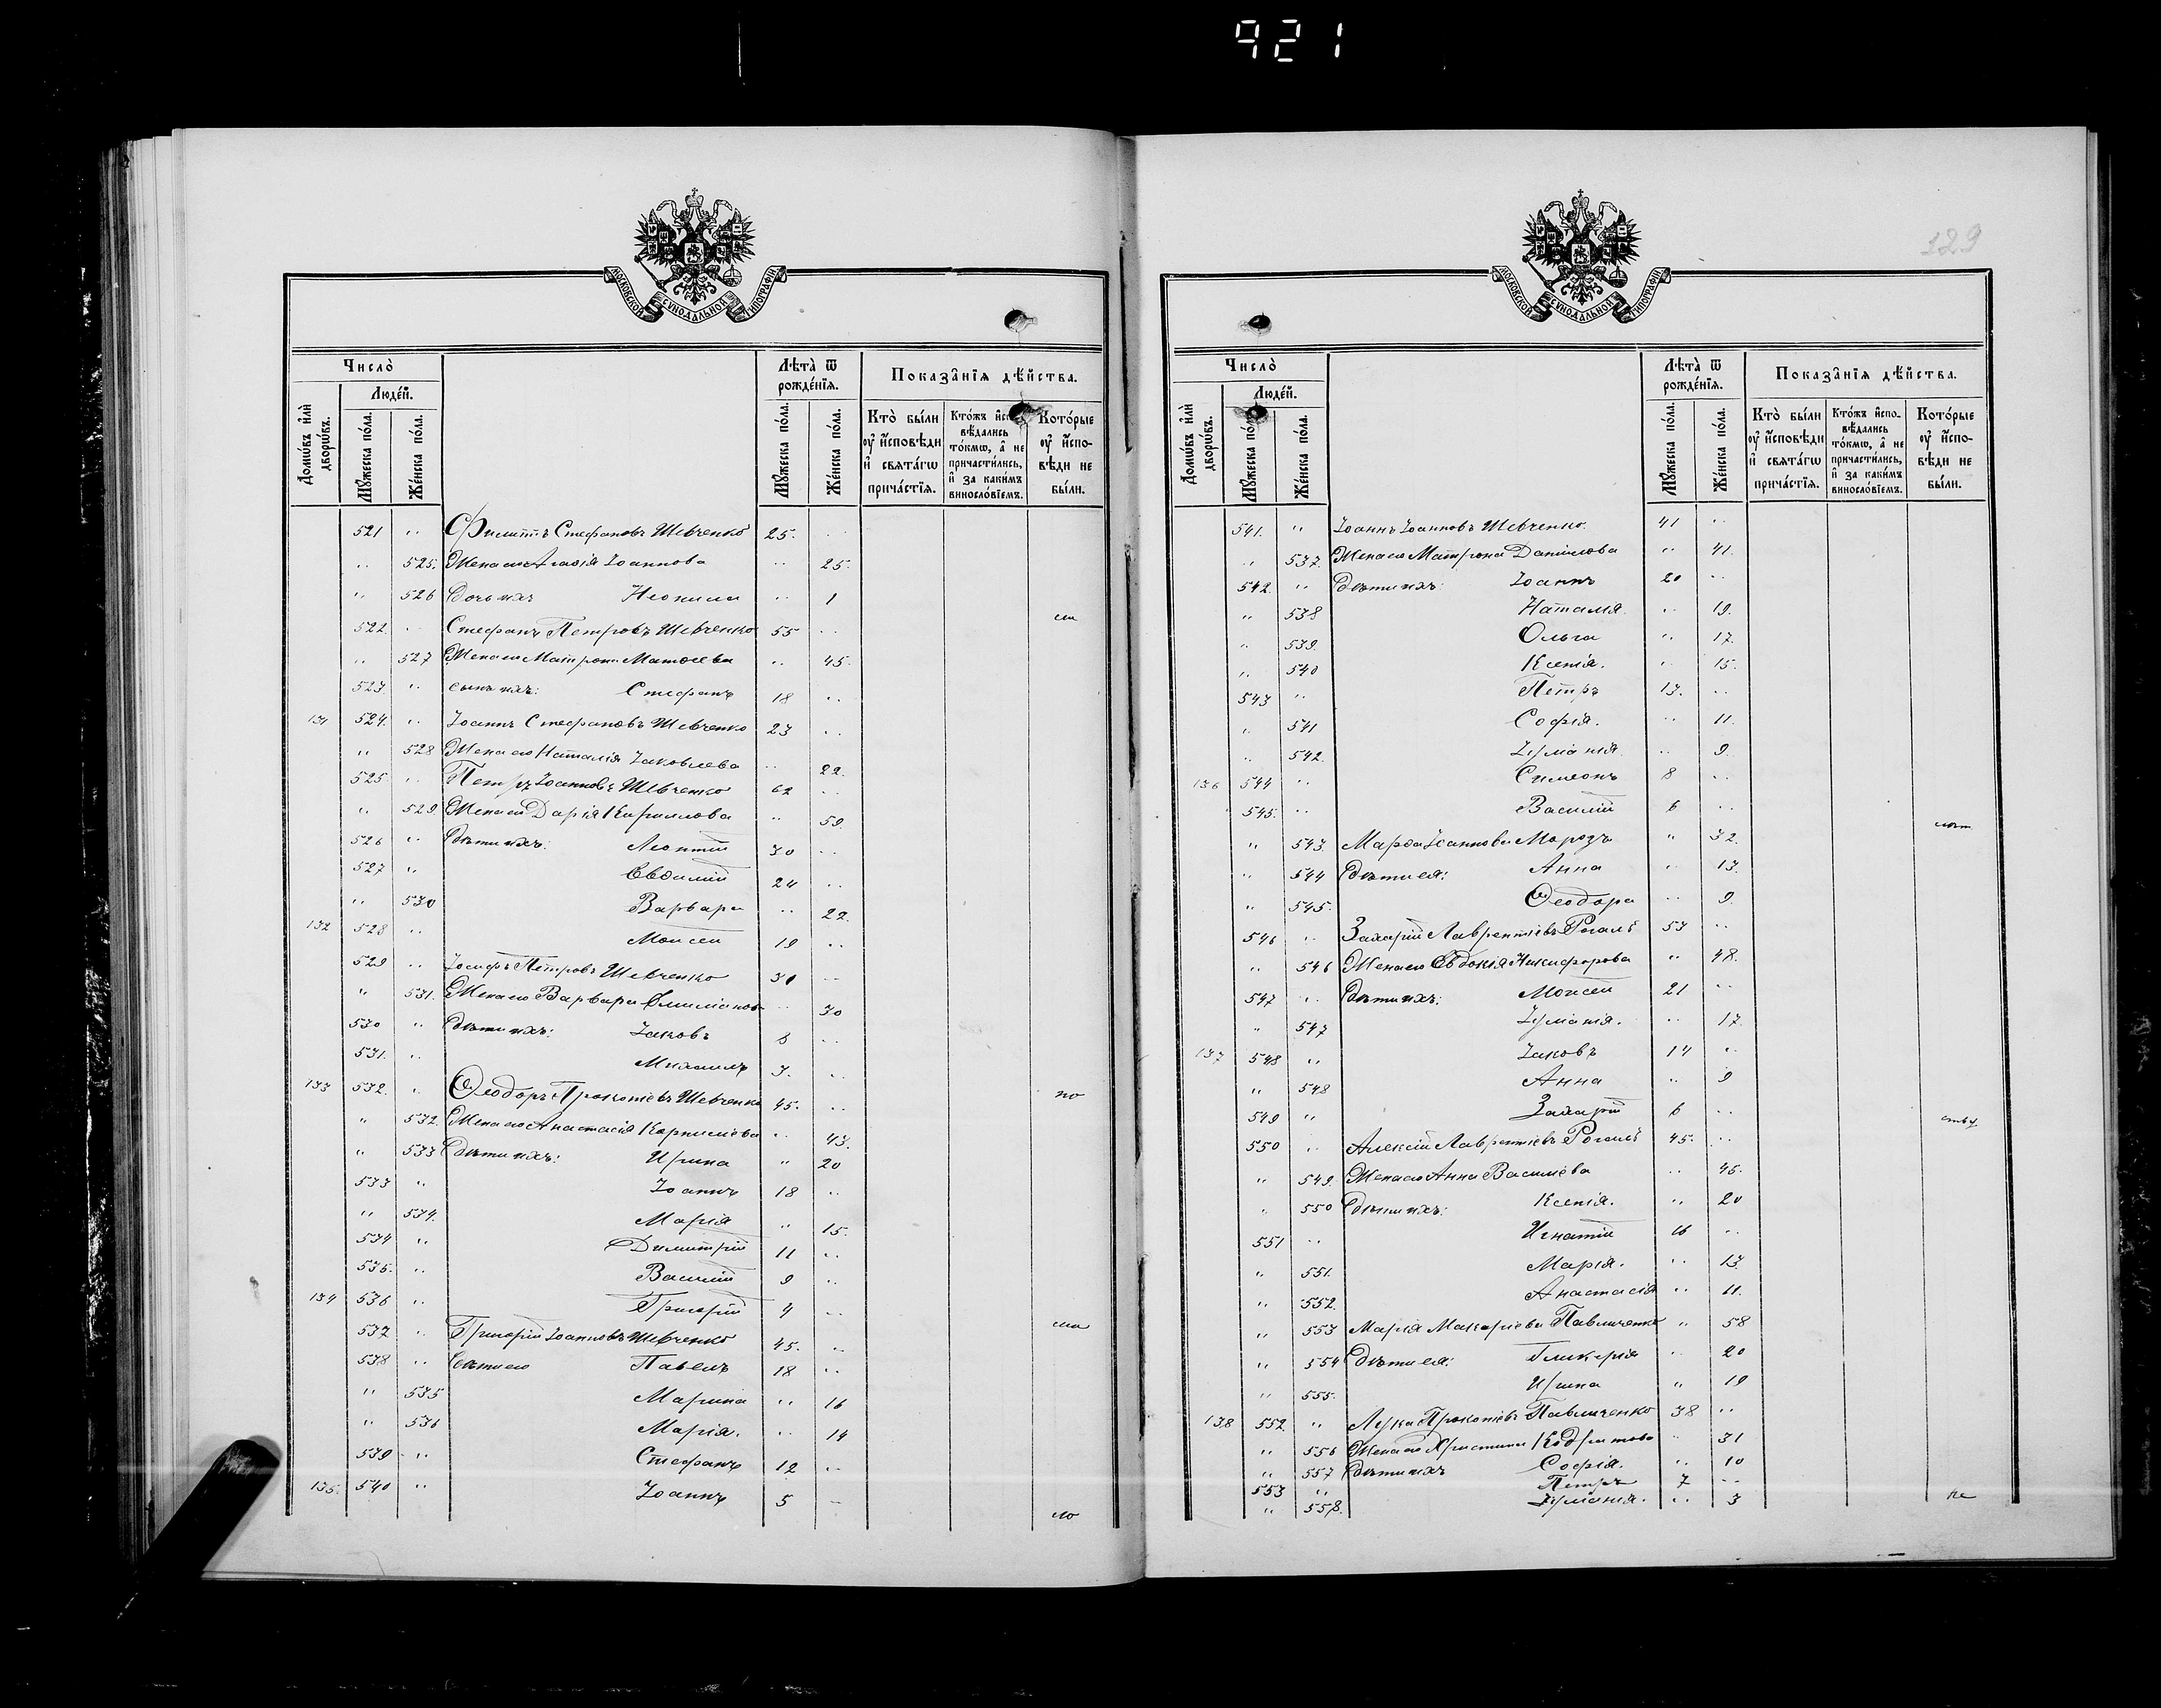 921
129
МОСКОВСКОЙ СѴНОДАЛЬНОЙ ТИПОГРАФІИ
Число̀
Лѣта̀ ѿ рожде́нїѧ.
Показа̂нїѧ дѣ́йства.
Домѡ́въ и҆лѝ дворѡ́въ.
Люде́й.
Мꙋ́жеска по́ла.
Же́нска по́ла.
Мꙋ́жеска по́ла.
Же́нска по́ла.
Кто̀ бы́ли ᲂу҆ и҆́сповѣди и҆ свѧта́гѡ прича́стїѧ.
Кто́жъ и҆спо- вѣ́дались то́кмѡ, а҆ не причасти́лись, и҆ за каки́мъ винословїемъ.
Кото́рые ᲂу҆ и҆́спо- вѣди не бы́ли.
521 „ Филиппъ Стефановъ Шевченко 25. „
„ 525. Жена его Агафія Іоаннова „ 25.
„ 526 Дочь ихъ Неонила „ 1
522 „ Стефанъ Петровъ Шевченко 55 „
„ 527 Жена его Матрона Матѳеева „ 45.
523 „ сынъ ихъ: Стефанъ 18 „
131 524. „ Іоаннъ Стефановъ Шевченко 23 „
„ 528 Жена его Наталія Іаковлева „ 22.
525 „ Петръ Іоанновъ Шевченко 62 „
„ 529. Жена его Дарія Кириллова „ 59.
526 „ Дѣти ихъ: Леонтій 30 „
527 „ Евфимій 24 „
„ 530 Варвара „ 22.
132 528 „ Моисей 19 „
529 „ Іосифъ Петровъ Шевченко 31 „
„ 531. Жена его Варвара „ 30
530 „ Дѣти ихъ: Іаковъ 6 „
531. „ Михаилъ 3. „
133 532. „ Ѳеодоръ Прокопіевъ Шевченко 45. „
по
„ 532. Жена его Анастасія Корниліева „ 43.
„ 533 Дѣти ихъ: Ирина „ 20
533 „ Іоаннъ 18 „
„ 534. Марія „ 15.
534 „ Димитрій 11 „
535. „ Василій 9 „
134 536 „ Григорій 4 „
537 „ Григорій Іоанновъ Шевченко 45. „
538 „ Дѣти его Павелъ 18 „
„ 535 Марина „ 16
„ 536 Марія. „ 14
539 „ Стефанъ 12 „
135. 540 „ Іоаннъ 5 „
ло
МОСКОВСКОЙ СѴНОДАЛЬНОЙ ТИПОГРАФІИ
Число̀
Лѣта̀ ѿ рожде́нїѧ.
Показа̂нїѧ дѣ́йства.
Домѡ́въ и҆лѝ дворѡ́въ.
Люде́й.
Мꙋ́жеска по́ла.
Же́нска по́ла.
Мꙋ́жеска по́ла.
Же́нска по́ла.
Кто̀ бы́ли ᲂу҆ и҆́сповѣди и҆ свѧта́гѡ прича́стїѧ.
Кто́жъ и҆спо- вѣ́дались то́кмѡ, а҆ не причасти́лись, и҆ за каки́мъ винословїемъ.
Кото́рые ᲂу҆ и҆́спо- вѣди не бы́ли.
541. „ Іоаннъ Іоанновъ Шевченко. 41 „
„ 537. Жена его Матрона Даніилова „ 41.
542. „ Дѣти ихъ: Іоаннъ 20 „
„ 538 Наталія. „ 19.
„ 539. Ольга „ 17.
„ 540 Ксенія. „ 15.
543 „ Петръ 13. „
„ 541 Софія. „ 11.
„ 542. Іуліанія. „ 9
136 544 „ Симеонъ 8 „
545. „ Василій 6 „
„ 543. Марѳа Іоаннова Морозъ „ 32.
„ 544 Дѣти ея: Анна „ 13.
„ 545. Ѳеодора „ 9.
546 „ Захарій Лаврентіевъ Рогаль 53 „
„ 546 Жена его Евдокія Никифорова „ 48.
547 „ Дѣти ихъ: Моисей 21 „
„ 547 Іуліанія. „ 17.
137 548 „ Іаковъ 14 „
„ 548 Анна „ 9
549 „ Захарій 6 „
ству
550 „ Алексій Лаврентіевъ Рогаль 45. „
„ 549. Жена его Анна Василіева „ 45.
„ 550 Дѣти ихъ: Ксенія. „ 20
551 „ Игнатій 16 „
„ 551. Марія. „ 13.
„ 552. Анастасія „ 11.
„ 553 Марія Макаріева Павличенко „ 58
„ 554 Дѣти ея: Гликерія „ 20
„ 555. Ирина „ 19
138 552. „ Лука Прокопіевъ Павличенко 38 „
„ 556 Жена его Христина „ 31
„ 557 Дѣти ихъ Софія. „ 10
553 „ Петръ 7 „
„ 558. Іуліанія. „ 3
не